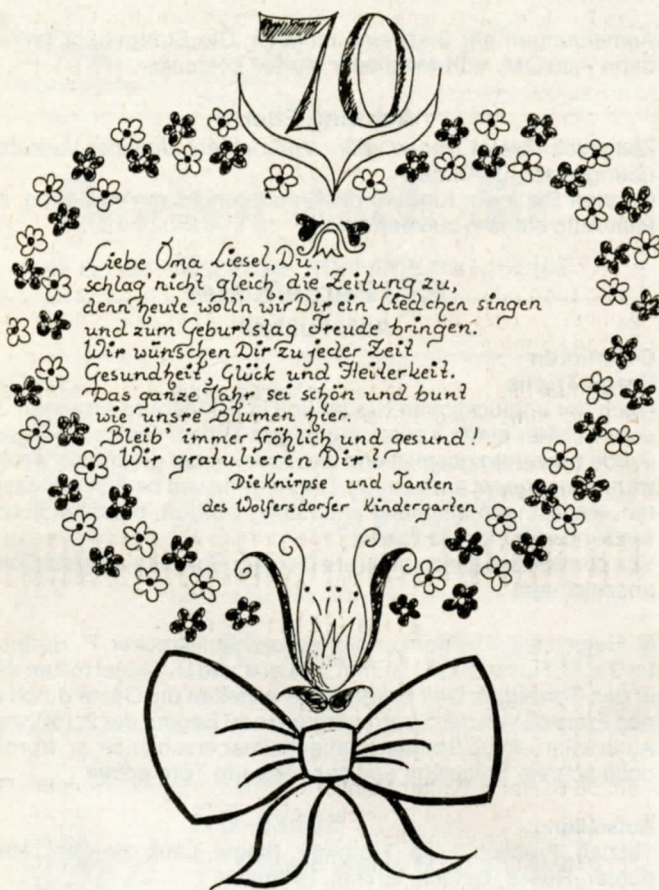 70
Liebe Oma Liesel, Du,
schlag' nicht gleich die Zeitung zu,
denn heute wolln wir Dir ein Liedchen singen
und zum Geburtstag Freude bringen.
Wir wünschen Dir zu jeder Zeit
Gesundheit, Glück und Heiterkeit.
Das ganze Jahr sei schön und bunt
wie unsre Blumen hier.
Bleib' immer fröhlich und gesund!
Wir gratulieren Dir!
Die Knirpse und Tanten
des Wolfersdorfer Kindergarten